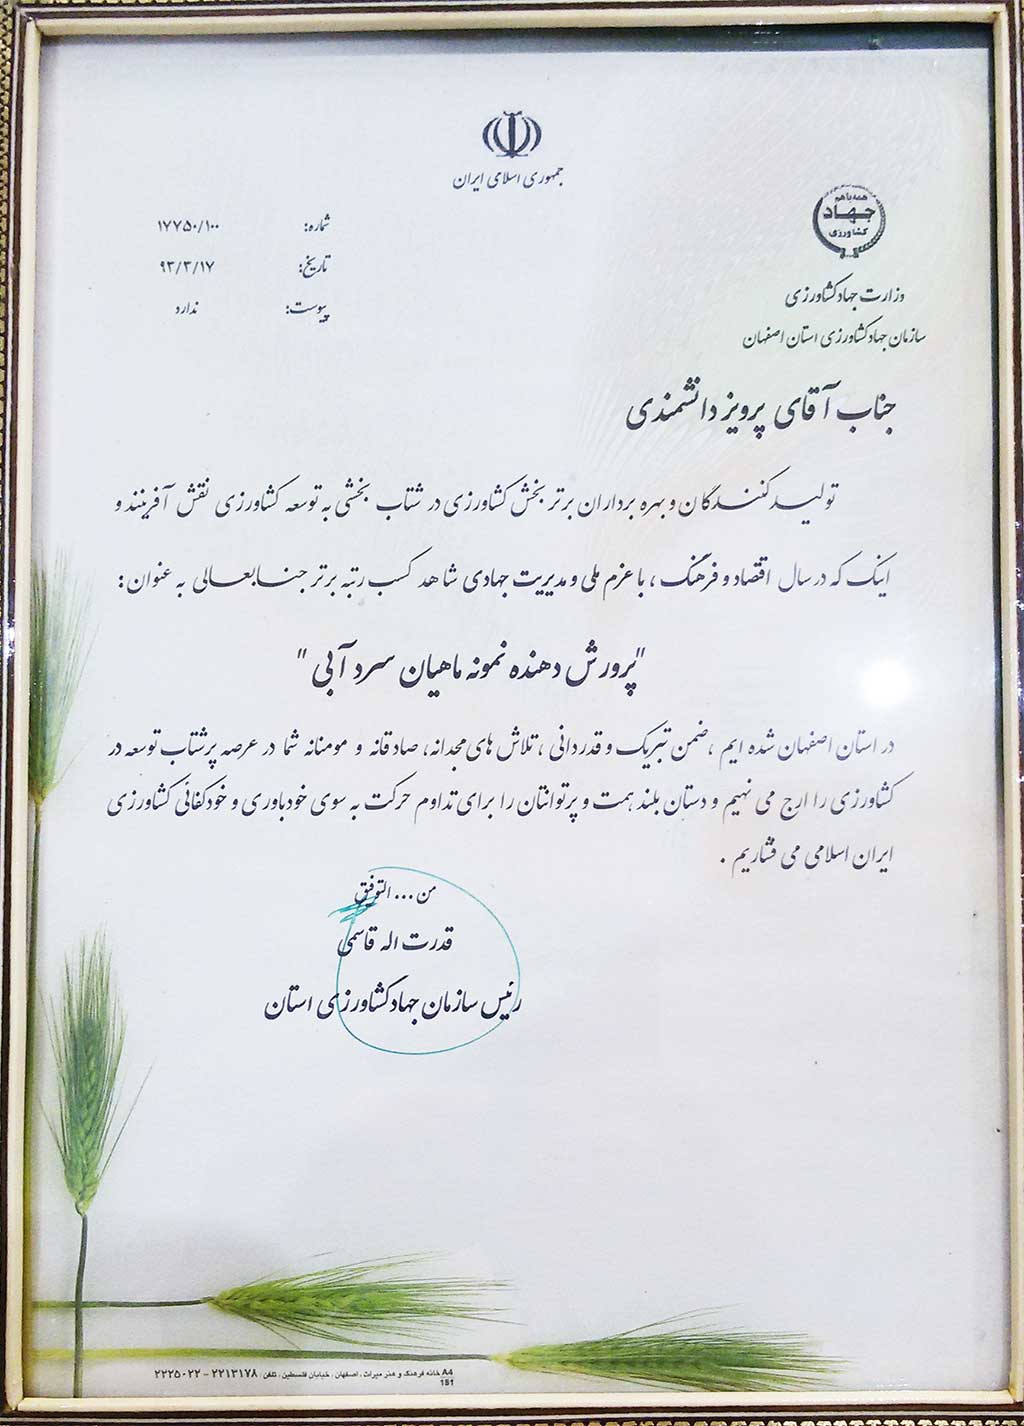 جمهوری اسلامی ایران
همه با هم
جهاد
کشاورزی
شماره: ۱۷۷۵۰/۱۰۰
تاریخ: ۹۳/۳/۱۷
پیوست: ندارد
وزارت جهاد کشاورزی
سازمان جهاد کشاورزی استان اصفهان
جناب آقای پرویز دانشمندی
تولید کنندگان و بهره برداران برتر بخش کشاورزی در شتاب بخشی به توسعه کشاورزی نقش آفرینند و
اینک که در سال اقتصاد و فرهنگ ، با عزم ملی و مدیریت جهادی شاهد کسب رتبه برتر جنابعالی به عنوان :
"پرورش دهنده نمونه ماهیان سرد آبی "
در استان اصفهان شده ایم ، ضمن تبریک و قدردانی ، تلاش های مجدانه، صادقانه و مومنانه شما در عرصه پرشتاب توسعه در
کشاورزی را ارج می نهیم و دستان بلند همت و پرتوانتان را برای تداوم حرکت به سوی خودباوری و خودکفائی کشاورزی
ایران اسلامی می فشاریم .
من ... التوفیق
قدرت اله قاسمی
رئیس سازمان جهاد کشاورزی استان
A4 خانه فرهنگ و هنر میراث ، اصفهان ، خیابان فلسطین ، تلفن ۲۲۱۳۱۷۸ - ۲۲۲۵۰۲۲
181